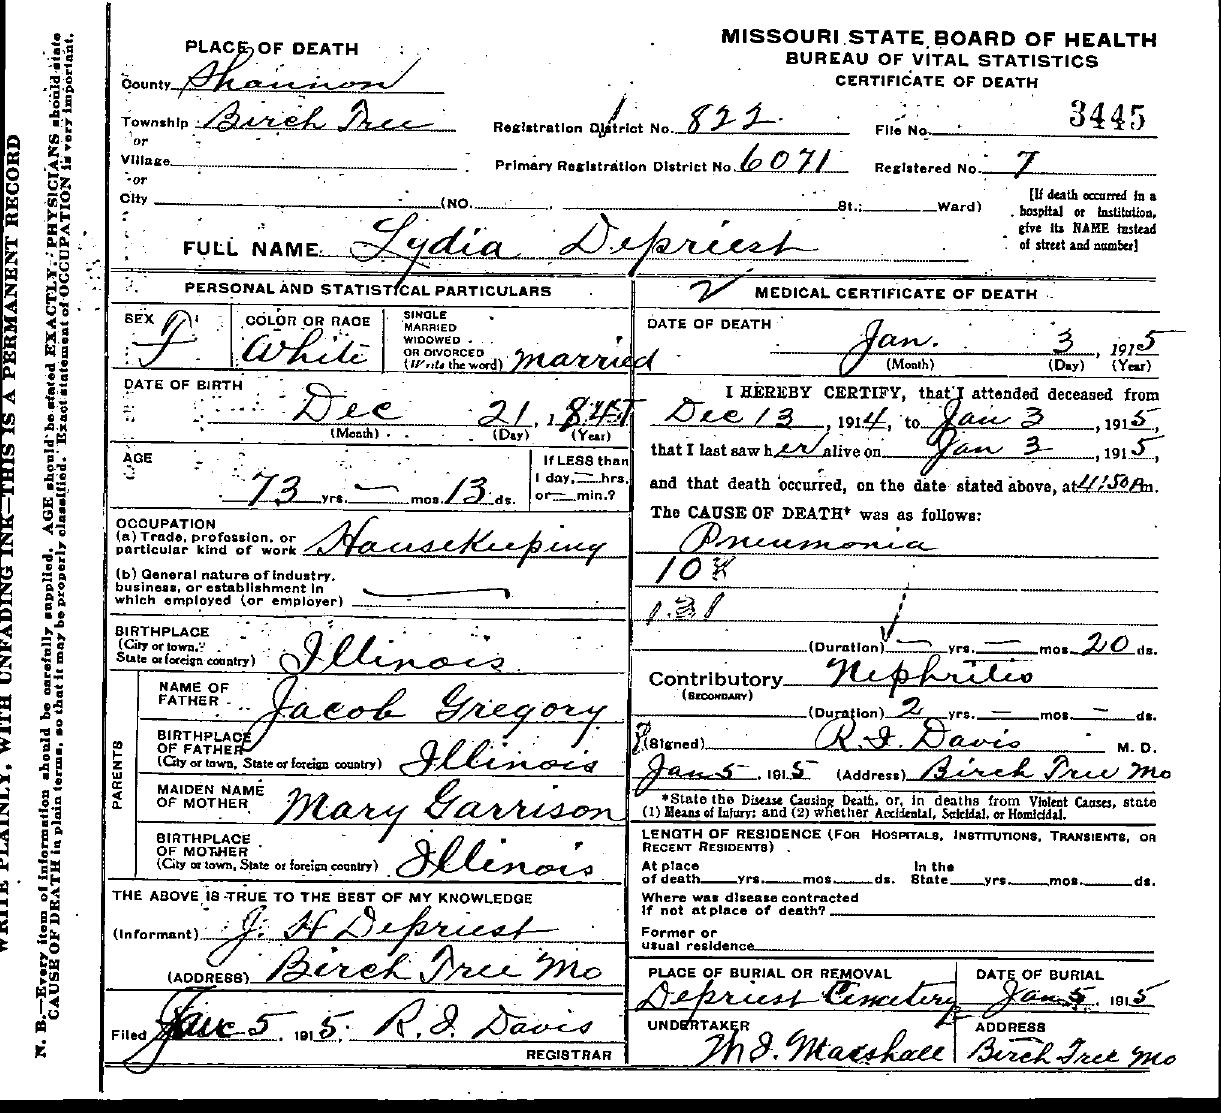 WRITE PLAINLY, WITH UNFADING INK—THIS IS A PERMANENT RECORD
N. B.—Every item of information should be carefully supplied. AGE should be stated EXACTLY. PHYSICIANS should state
CAUSE OF DEATH in plain terms, so that it may be properly classified. Exact statement of OCCUPATION is very important.
MISSOURI STATE BOARD OF HEALTH
BUREAU OF VITAL STATISTICS
CERTIFICATE OF DEATH
PLACE OF DEATH
County Shannon
Township Birch Tree
or
Village
or
City (NO. St.; Ward)
Registration District No. 822
File No. 3445
Primary Registration District No. 6071
Registered No. 7
[If death occurred in a
hospital or institution,
give its NAME instead
of street and number]
FULL NAME Lydia Depriest
PERSONAL AND STATISTICAL PARTICULARS
SEX F
COLOR OR RACE White
SINGLE
MARRIED
WIDOWED
OR DIVORCED
(Write the word) married
DATE OF BIRTH
Dec 21, 1
(Month) (Day) (Year)
AGE
73 yrs. — mos. 13 ds.
If LESS than
1 day, — hrs.
or — min.?
OCCUPATION
(a) Trade, profession, or
particular kind of work Housekeeping
(b) General nature of industry,
business, or establishment in
which employed (or employer) —
BIRTHPLACE
(City or town,
State or foreign country) Illinois
PARENTS
NAME OF
FATHER Jacob Gregory
BIRTHPLACE
OF FATHER
(City or town, State or foreign country) Illinois
MAIDEN NAME
OF MOTHER Mary Garrison
BIRTHPLACE
OF MOTHER
(City or town, State or foreign country) Illinois
THE ABOVE IS TRUE TO THE BEST OF MY KNOWLEDGE
(Informant) J. H Depriest
(ADDRESS) Birch Tree Mo
Filed 5, 1915. R. I. Davis
REGISTRAR
MEDICAL CERTIFICATE OF DEATH
DATE OF DEATH
Jan. 3, 1915
(Month) (Day) (Year)
I HEREBY CERTIFY, that I attended deceased from
Dec 13, 1914, to Jan 3, 1915,
that I last saw her alive on Jan 3, 1915,
and that death occurred, on the date stated above, at 4:50 Pm.
The CAUSE OF DEATH* was as follows:
Pneumonia
10
131
(Duration) — yrs. — mos. 20 ds.
Contributory Nephritis
(SECONDARY)
(Duration) 2 yrs. — mos. — ds.
(Signed) R. I. Davis M. D.
Jan 5, 1915 (Address) Birch Tree Mo
*State the Disease Causing Death, or, in deaths from Violent Causes, state
(1) Means of Injury; and (2) whether Accidental, Suicidal, or Homicidal.
LENGTH OF RESIDENCE (FOR HOSPITALS, INSTITUTIONS, TRANSIENTS, OR
RECENT RESIDENTS)
At place
of death yrs. mos. ds.
In the
State yrs. mos. ds.
Where was disease contracted
if not at place of death?
Former or
usual residence
PLACE OF BURIAL OR REMOVAL
Depriest Cemetery
DATE OF BURIAL
Jan 5, 1915
UNDERTAKER
M. I. Marshall
ADDRESS
Birch Tree Mo